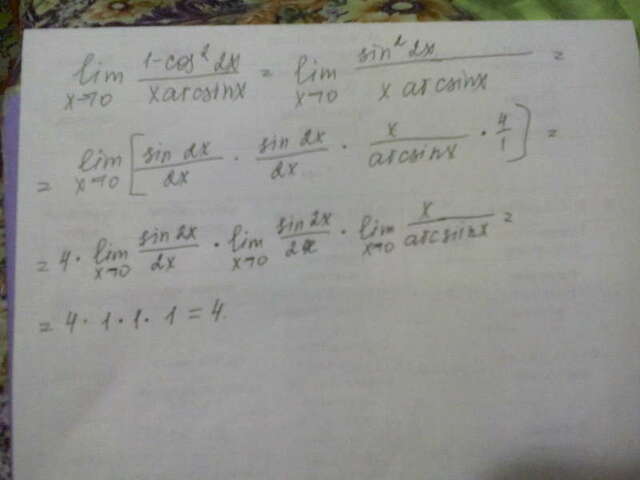 lim x→0 (1-cos² 2x)/(x arcsinx) = lim x→0 (sin² 2x)/(x arcsinx) =
= lim x→0 [ (sin 2x)/(2x) · (sin 2x)/(2x) · x/(arcsinx) · 4/1 ] =
= 4 · lim x→0 (sin 2x)/(2x) · lim x→0 (sin 2x)/(2x) · lim x→0 x/(arcsinx) =
= 4 · 1 · 1 · 1 = 4.